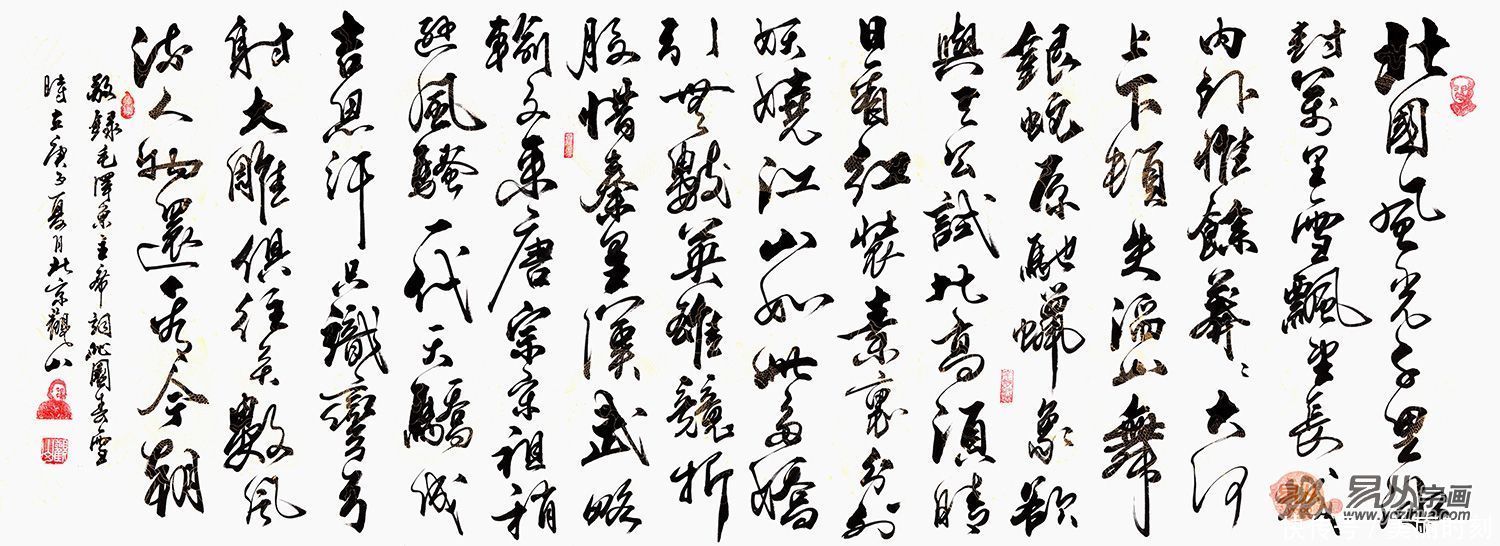 北國風光千里冰
封萬里雪飄望長城
内外惟餘莽莽大河
上下頓失滔山舞
銀蛇原馳蠟象欲
與天公試比高須晴
日看紅裝素裹分外
妖嬈江山如此多嬌
引無數英雄競折
腰惜秦皇漢武略
輸文采唐宗宋祖稍
遜風騷一代天驕成
吉思汗只識彎弓
射大雕俱往矣數風
流人物還看今朝
敬錄毛澤東主席詞沁園春雪
時在庚子夏月北京觀山
易从字画
www.yczihua.com